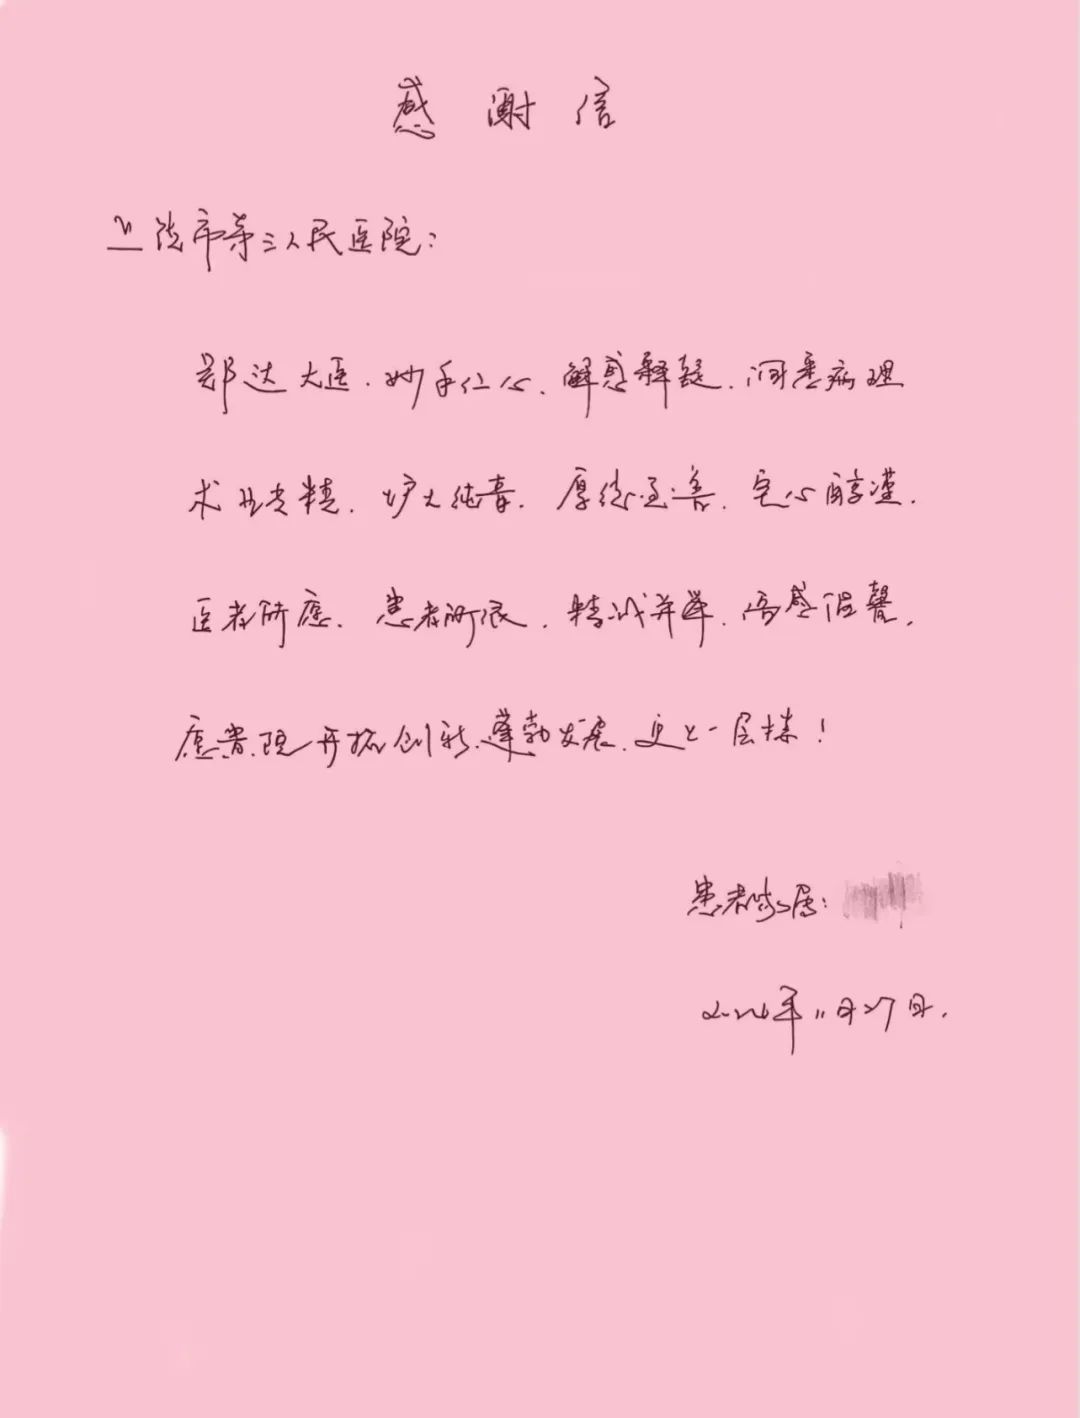 感谢信
市第三人民医院：
郑达大医.妙手仁心.解惑释疑.洞悉病理
术业专精.炉火纯青.厚德至善.宅心醇谨.
医者所愿.患者所依.精诚并举.铭感馨.
愿贵院开拓创新.蓬勃发展.更上一层楼！
患者家属：
年11月27日.